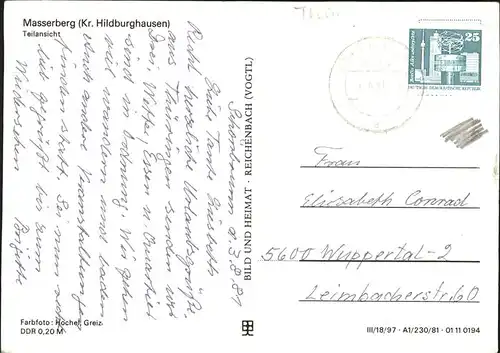 Masserberg (Kr. Hildburghausen)
Teilansicht
Schönbrunn d. 3.8.81
Liebe Tante Elisabeth
Recht herzliche Urlaubsgrüße
aus Thüringen senden wir
Drei, Wetter, Essen u. Quartier
sind in Ordnung. Wir gehen
viel wandern und baden
Auch andere Veranstaltungen
finden statt. Sei nun recht
lieb gegrüßt bis zum
Wiedersehen
BILD UND HEIMAT · REICHENBACH (VOGTL)
25
DEUTSCHE DEMOKRATISCHE REPUBLIK
Frau
Elisabeth Conrad
5600 Wuppertal-2
Leimbacherstr. 60
Farbfoto: Höchel, Greiz
DDR 0,20 M
III/18/97 · A1/230/81 · 01 11 0194